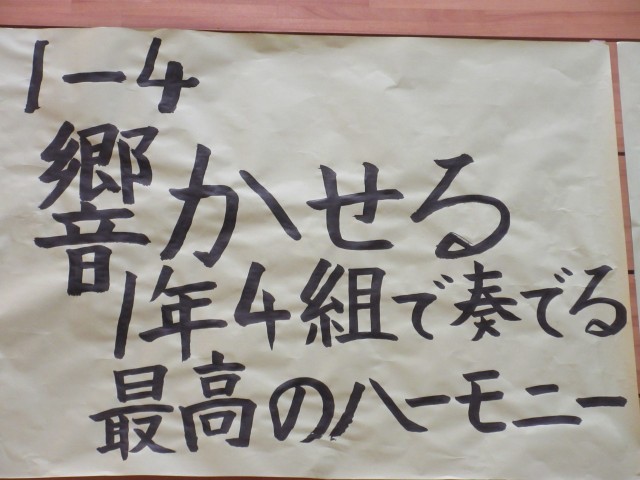 1-4
響かせる
1年4組で奏でる
最高のハーモニー